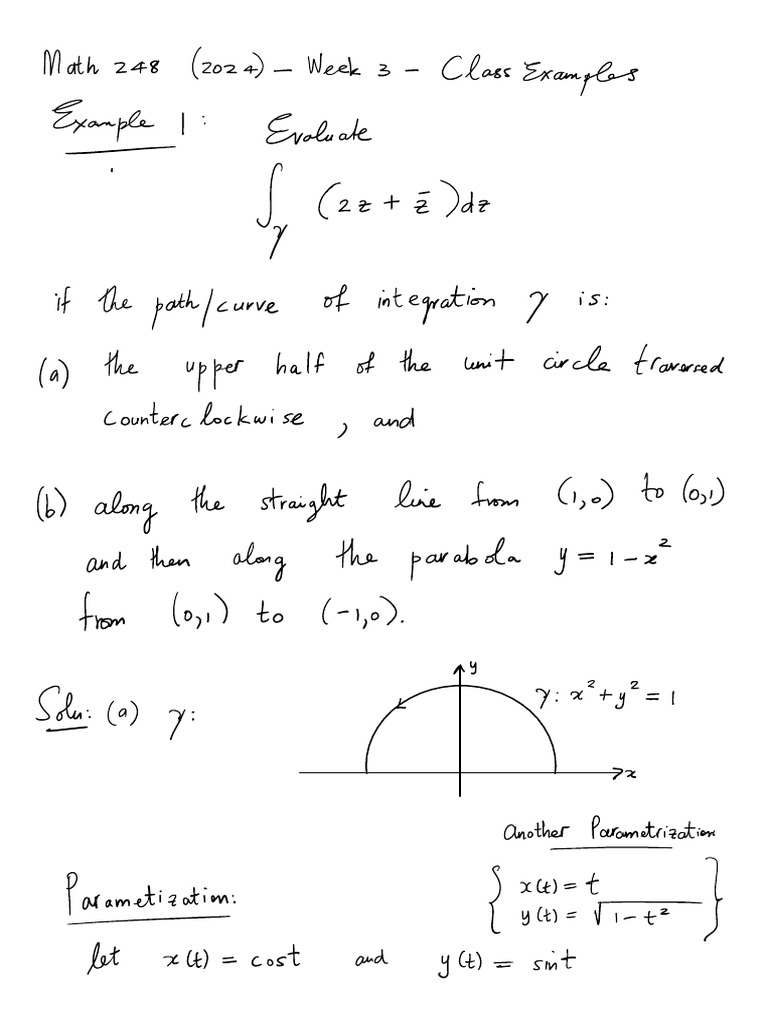 Math 248 (2024) – Week 3 – Class Examples
Example 1:
Evaluate
∫_γ (2z + z̄)dz
if the path/curve of integration γ is:
(a) the upper half of the unit circle traversed
counterclockwise, and
(b) along the straight line from (1,0) to (0,1)
and then along the parabola y = 1 – x²
from (0,1) to (-1,0).
Soln: (a) γ:
y
γ: x² + y² = 1
x
Another Parametrization
{ x(t) = t
y(t) = √(1 – t²) }
Parametization:
let x(t) = cost and y(t) = sint